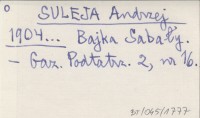 SULEJA Andrzej
1904... Bajka Sabały.
- Gaz. Podtatrz. 2, nr 16.